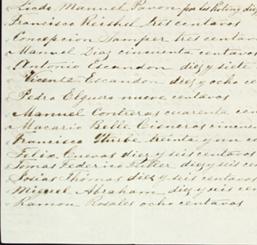 Licdo Manuel Pavon
Francisco Reichel tres centavos
Concepcion Samper tres centavos
Manuel Diaz cincuenta centavos
Antonio Escandon diez y siete
Vicente Escandon diez y ocho ce
Pedro Elguero nueve centavos
Manuel Contreras cuarenta cen
Macario Bello Cisneros cincuen
Francisco Iturbe treinta y un ce
Felix Cuevas diez y seis centavos
Tomas Federico diez y seis cen
Josias Thomas diez y seis centavos
Miguel Abraham diez y seis cen
Ramon Rosales ocho centavos